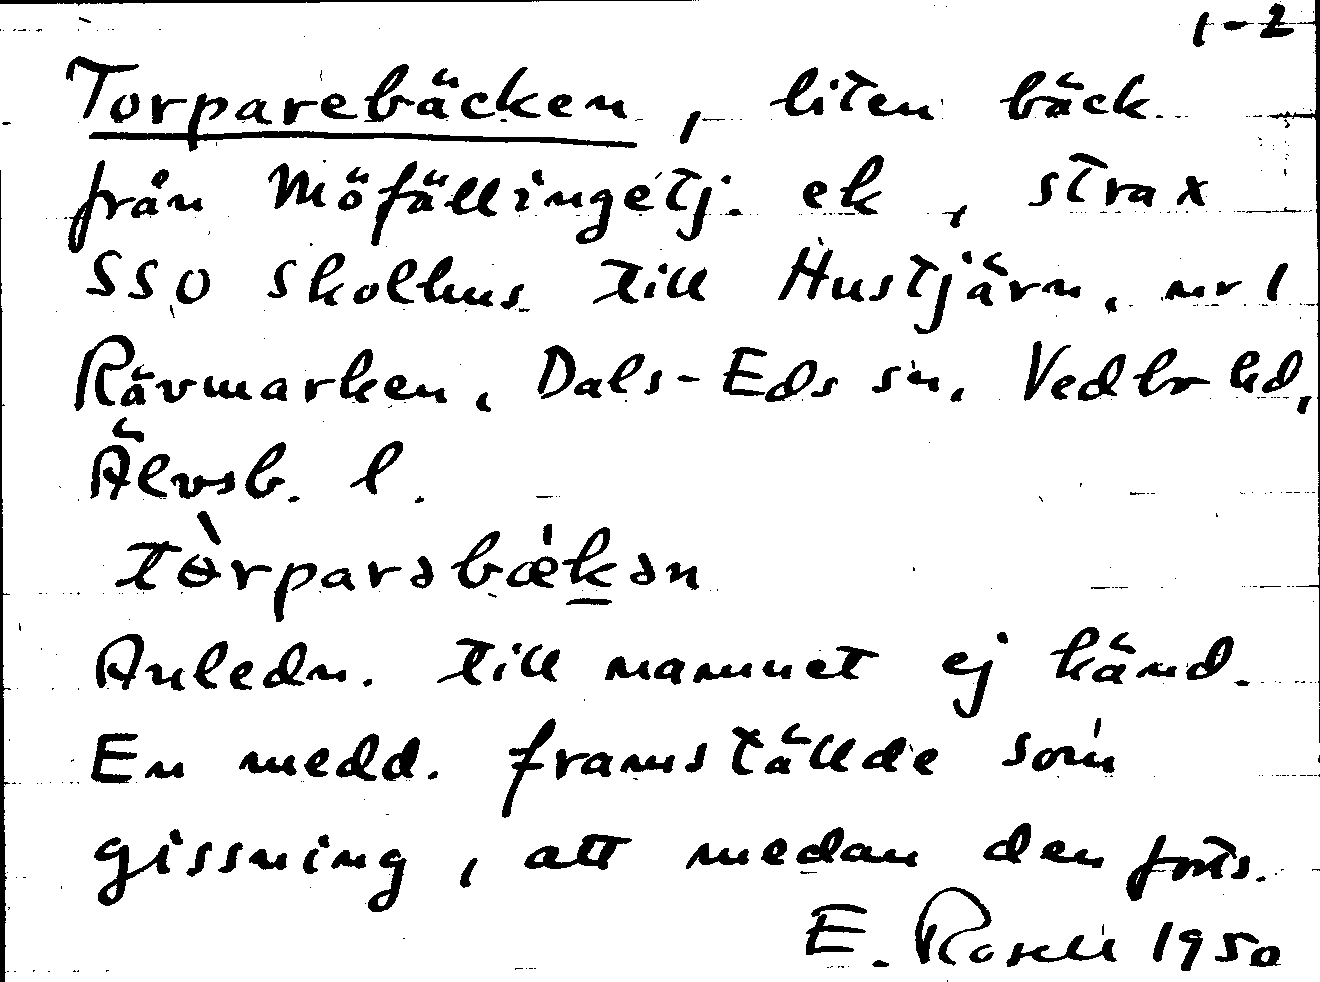 1-2
Torparebäcken, liten bäck
från Möfällingetj. ek, strax
SSO skolhus till Hustjärn, nr 1
Rävmarken, Dals-Eds sn. Vedbo hd,
Älvsb. l.
tòrparəbæ̍kən
Anledn. till namnet ej känd.
En medd. framställde som
gissning, att medan den forts.
E. Rosell 1950